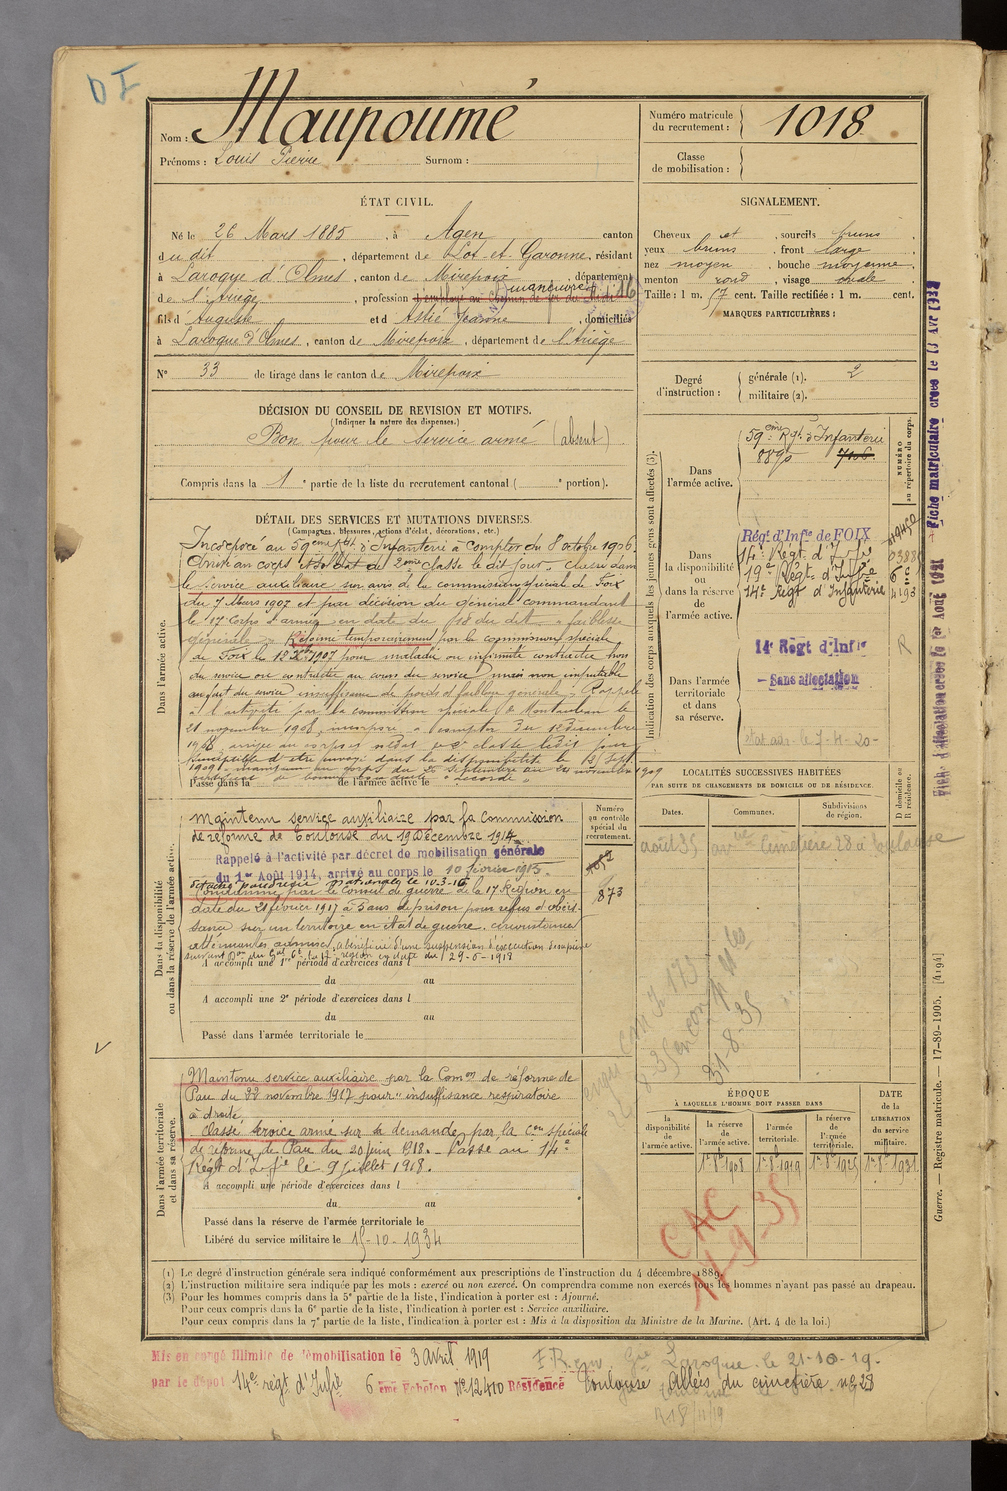 D I
Nom : Maupoumé
Prénoms : Louis Pierre Surnom :
Numéro matricule du recrutement : 1018
Classe de mobilisation :
ÉTAT CIVIL.
Né le 26 Mars 1885, à Agen canton
du dit, département de Lot-et-Garonne, résidant
à Laroque d'Olmes, canton de Mirepoix, département
de l'Ariège, profession employé au chemin de fer du Midi Manœuvre 16
fils d'Auguste et d Astié Jeanne, domiciliés
à Laroque d'Olmes, canton de Mirepoix, département de l'Ariège
N° 33 de tirage dans le canton de Mirepoix
SIGNALEMENT.
Cheveux et, sourcils bruns,
yeux bruns, front large,
nez moyen, bouche moyenne,
menton rond, visage ovale
Taille : 1 m. 57 cent. Taille rectifiée : 1 m. cent.
MARQUES PARTICULIÈRES :
Degré d'instruction : générale (1). 2
militaire (2).
DÉCISION DU CONSEIL DE REVISION ET MOTIFS.
(Indiquer la nature des dispenses.)
Bon pour le service armé (absent)
Compris dans la 1e partie de la liste du recrutement cantonal ( e portion).
DÉTAIL DES SERVICES ET MUTATIONS DIVERSES
(Campagnes, blessures, actions d'éclat, décorations, etc.)
Dans l'armée active.
Incorporé au 59eme Regt d'Infanterie à compter du 8 octobre 1906.
Arrivé au corps et soldat de 2eme classe le dit jour. Classé dans
le service auxiliaire sur avis de la commission spéciale de Foix
du 7 Mars 1907 et par décision du général commandant
le 17 Corps d'armée en date du 18 du dit "faiblesse
générale". Réformé temporairement par la commission spéciale
de Foix le 12 Xbre 1907 pour maladie ou infirmité contractée hors
du service ou contractée au cours du service mais non imputable
au fait du service insuffisance de poids et faiblesse générale. Rappelé
à l'activité par la commission spéciale de Montauban le
21 novembre 1908, incorporé à compter du 1er Décembre
1908, arrivé au corps et soldat de 2e classe ledit jour
susceptible d'être envoyé dans la disponibilité le 12 Sept.
1909, maintenu au corps du 25 Septembre au 24 novembre 1909
certificat de bonne conduite "accordé"
Passé dans la de l'armée active le
Indication des corps auxquels les jeunes gens sont affectés (3).
Dans l'armée active. 59eme Rgt d'Infanterie
8890 706
NUMÉRO au répertoire du corps.
Dans la disponibilité ou dans la réserve de l'armée active.
Rég. d'Infie de FOIX
14e Régt. d'Infie 03838
19e Régt. d'Infie
14e Régt d'Infanterie 4193
Dans l'armée territoriale et dans sa réserve.
14e Régt d'Infie
Sans affectation
R
Fiche matriculaire créée le 13 Avr 1932
Fiche d'affectation créée le 1er Août 1931
LOCALITÉS SUCCESSIVES HABITÉES
PAR SUITE DE CHANGEMENTS DE DOMICILE OU DE RÉSIDENCE.
Dates. Communes. Subdivisions de région. D domicile ou R résidence.
août 35 avue Cimetière 28 à Toulouse
Dans la disponibilité ou dans la réserve de l'armée active.
Numéro au contrôle spécial du recrutement.
873
Maintenu service auxiliaire par la Commission
de réforme de Toulouse du 19 Décembre 1914
Rappelé à l'activité par décret de mobilisation générale
du 1er Août 1914, arrivé au corps le 10 février 1915.
Détaché poudrerie nationale le 10-3-16
Condamné par le Conseil de guerre de la 17 Région en
date du 21 février 1917 à 5 ans de prison pour refus d'obéis-
sance sur un territoire en état de guerre. Circonstances
atténuantes admises, a bénéficié d'une suspension d'exécution de sa peine
suivant Don du Gal Ct la 17e région en date du 29-6-1918
A accompli une 1re période d'exercices dans l
du au
A accompli une 2e période d'exercices dans l
du au
Passé dans l'armée territoriale le
31-8-35
Dans l'armée territoriale et dans sa réserve.
Maintenu service auxiliaire par la Comon de réforme de
Pau du 22 novembre 1917 pour "insuffisance respiratoire
à droite
Classé service armé sur sa demande, par la Con spéciale
de réforme de Pau du 20 juin 1918. Passé au 14e
Régt d'Infie le 9 Juillet 1918.
A accompli une période d'exercices dans l
du au
Passé dans la réserve de l'armée territoriale le
Libéré du service militaire le 15-10-1934
ÉPOQUE
À LAQUELLE L'HOMME DOIT PASSER DANS
la disponibilité de l'armée active. la réserve de l'armée active. l'armée territoriale. la réserve de l'armée territoriale.
DATE de la LIBÉRATION du service militaire.
1er 8bre 1908 1er 8bre 1919 1er 8bre 1925 1er 8bre 1931
CAC
17-9-35
(1) Le degré d'instruction générale sera indiqué conformément aux prescriptions de l'instruction du 4 décembre 1889.
(2) L'instruction militaire sera indiquée par les mots : exercé ou non exercé. On comprendra comme non exercés tous les hommes n'ayant pas passé au drapeau.
(3) Pour les hommes compris dans la 5e partie de la liste, l'indication à porter est : Ajourné.
Pour ceux compris dans la 6e partie de la liste, l'indication à porter est : Service auxiliaire.
Pour ceux compris dans la 7e partie de la liste, l'indication à porter est : Mis à la disposition du Ministre de la Marine. (Art. 4 de la loi.)
Guerre. — Registre matricule. — 17-89-1905. [4194]
Mis en congé illimité de démobilisation le 3 avril 1919
par le dépôt 14e régt d'Infie 6eme Echelon N° 12410 Résidence Toulouse Allées du cimetière n° 28
Laroque le 21-10-19.
R 18/11/19